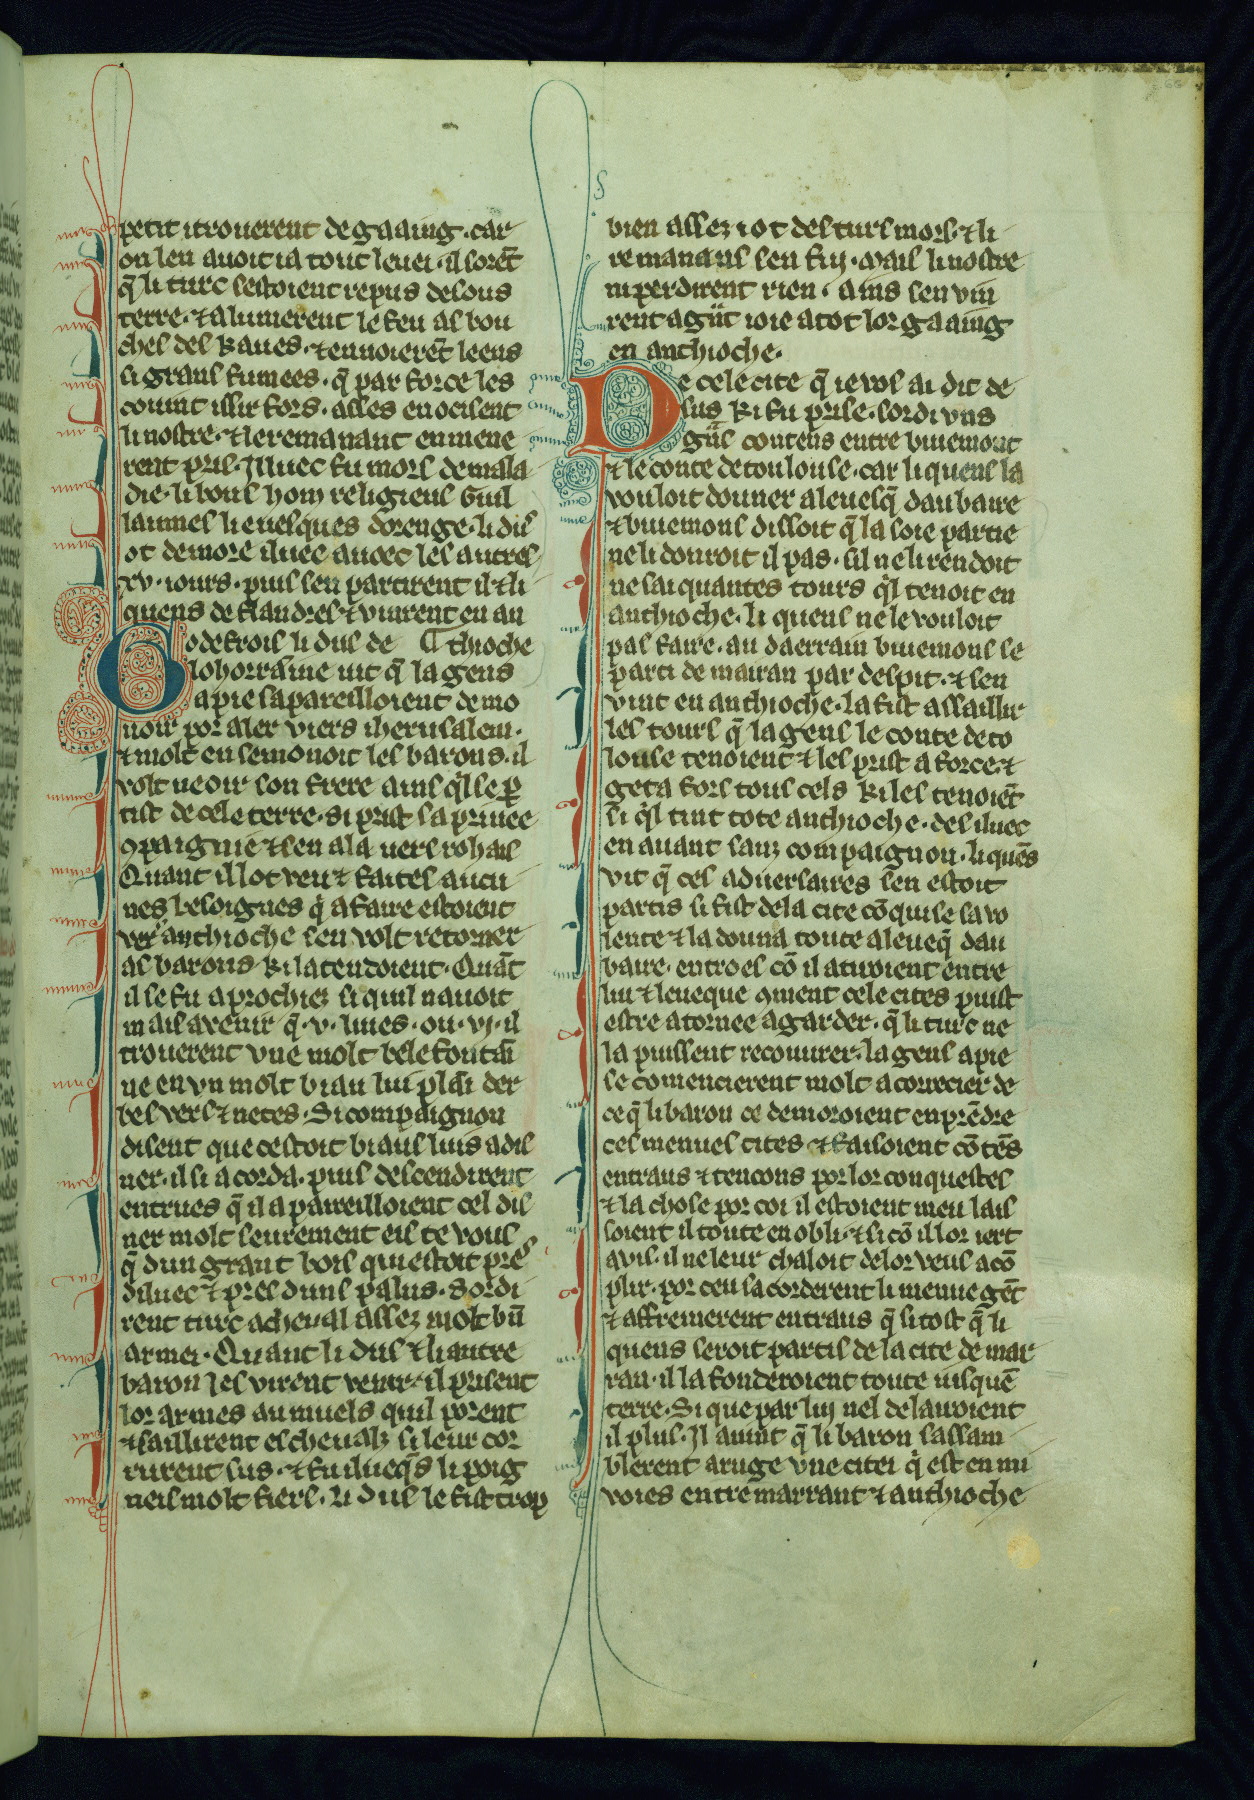 petit i trouerent de gaaing. car
on len auoit ia tout leuei. il sorēt
q̄ li turc sestoient repus desous
terre. ⁊ alumerent le feu as bou
ches des kaues. ⁊ enuoierēt leens
si grans fumees. q̄ par force les
couint issir fors. asses en ocisent
li nostre. ⁊ le remanant enmene
rent pris. Illuec fu mors de mala
die. li bons hom religieus Guil
laumes li euesques dorenge. li dus
ot demore iluec auoec les autres
xv. iours. puis sen partirent il ⁊ li
quens de flandres ⁊ vinrent en an
Godefrois li dus de thioche
lohorraine uit q̄ la gens
a pie sapareilloient de mo
uoir por aler viers iherusalem.
⁊ molt en semonoit les barons. il
volt ueoir son frere ains q̓l se p̄
tist de cele terre. si prist sa priuee
ꝯpaignie ⁊ sen ala uers rohais
Quant il lot veu ⁊ faites aucu
nes besoignes q̓ a faire estoient
vers anthioche sen volt retorner
as barons ki latendoient. Quāt
il se fu aprochiez si quil nauoit
mais a venir q̄ .v. liues. ou .vi. il
trouerent vne molt bele fontai
ne en vn molt biau liu plai der
bes vers ⁊ netes. Si compaignon
disent que cestoit biaus lius a dis
ner. il si acorda. puis descendirent
entrues q̄ il apareilloient cel dis
ner molt seurement eis te vous
q̄ dun grant bois qui estoit pres
diluec ⁊ pres duns palus. Sordi
rent turc a cheual assez molt bn̄
armei. Quant li dus ⁊ li autre
baron les virent venir. il prisent
lor armes au muels quil porent
⁊ saillirent es cheualz si leur cor
rurent sus. ⁊ fu ilueq̄s li poig
neis molt fiers. Li dus le fist trop
bien assez i ot des turs mors. ⁊ li
remanans sen fui. Mais li nostre
ni perdirent rien. ains sen vin
rent a gñt ioie a tot lor gaaing
en anthioche.
De cele cite q̄ ie vos ai dit de
sus ki fu prise. sordi vns
gñs contens entre buiemont
⁊ le conte de toulouse. car li quens la
vouloit donner a leuesq̄ daubaire
⁊ buiemons dissoit q̄ la soie partie
ne li donroit il pas. sil ne li rendoit
ne sai quantes tours q̓l tenoit en
anthioche. li quens ne le vouloit
pas faire. au daerrain buiemons se
parti de marran par despit. ⁊ sen
vint en anthioche. la fist assaillir
les tours q̄ la gens le conte de to
louse tenoient ⁊ les prist a force. ⁊
geta fors tous cels ki les tenoiēt
si q̓l tint tote anthioche. des iluec
en auant sanz compaignon. li quēs
vit q̄ ces aduersaires sen estoit
partis si fist de la cite cōquise sa vo
lente ⁊ la donna toute a leueq̄ dau
baire. entroes cō il atiroient entre
lui ⁊ leueque ꝯment cele cites puist
estre atornee a garder. q̄ li turc ne
la puissent recouurer. la gens a pie
se comencierent molt a courecier de
ce q̄ li baron ce demoroient en prēdre
ces menues cites ⁊ faisoient cō tēs
entraus ⁊ tencons por lor conquestes
⁊ la chose por coi il estoient meu lais
soient il toute en obli. ⁊ si cō il lor iert
auis. il ne leur chaloit de lor veus acō
plir. por ceu sacorderent li menue gēt
⁊ affremerent entraus q̄ si tost q̄ li
quens seroit partis de la cite de mar
ran. il la fonderoient toute iusquē
terre. Si que par lui nel delairoient
il plus. Il auint q̄ li baron sassam
blerent a ruge vne citei q̓ est en mi
voies entre marrant ⁊ anthioche